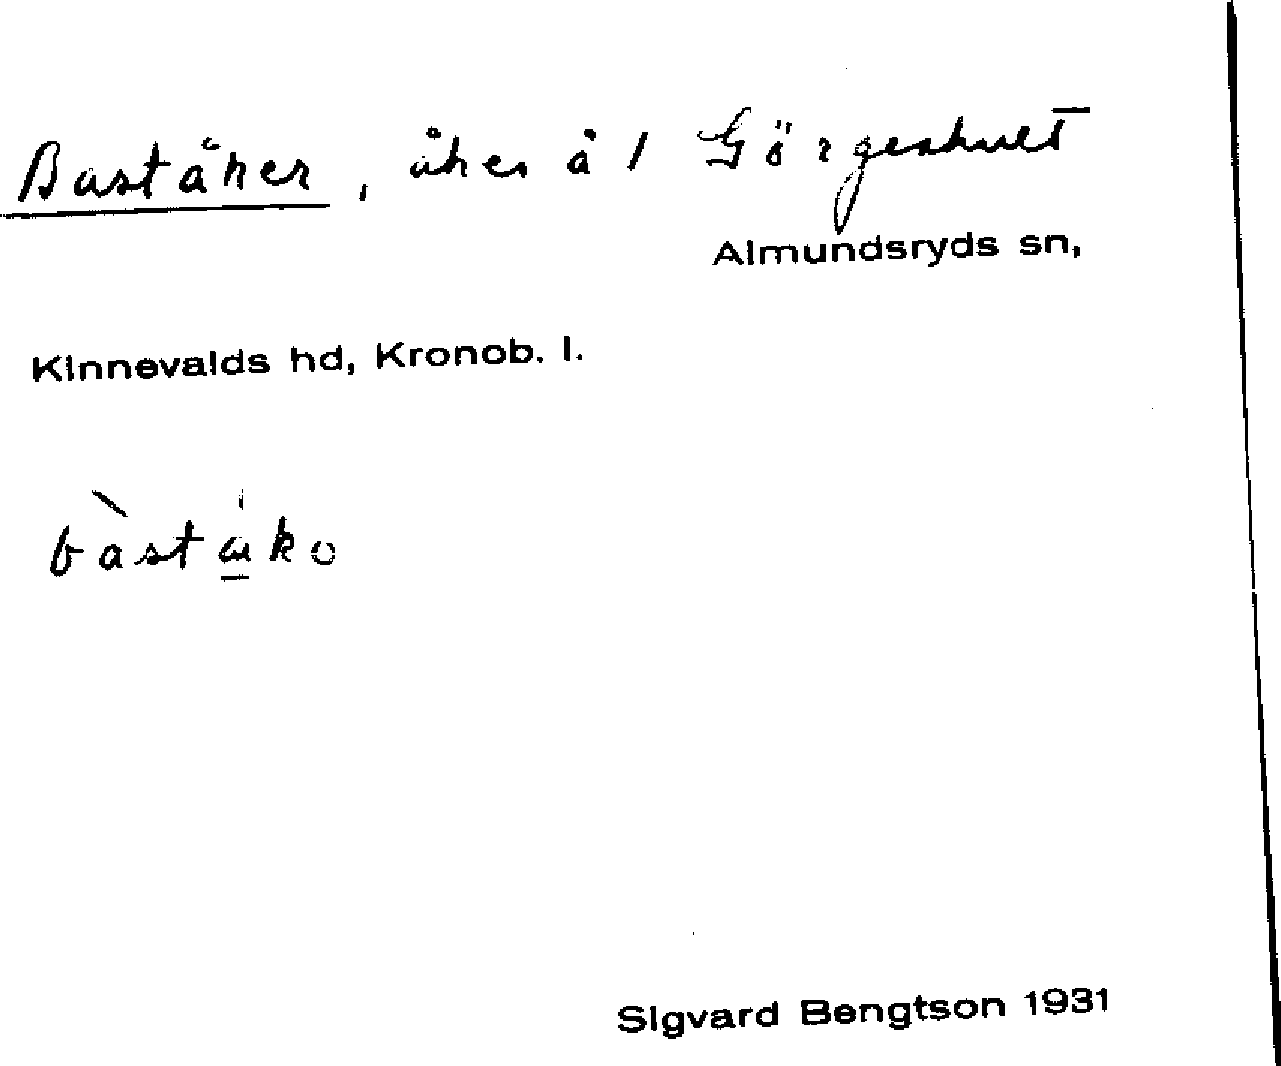 Baståker, åker å 1 Görgeshult
Almundsryds sn,
Kinnevalds hd, Kronob. l.
Sigvard Bengtson 1931